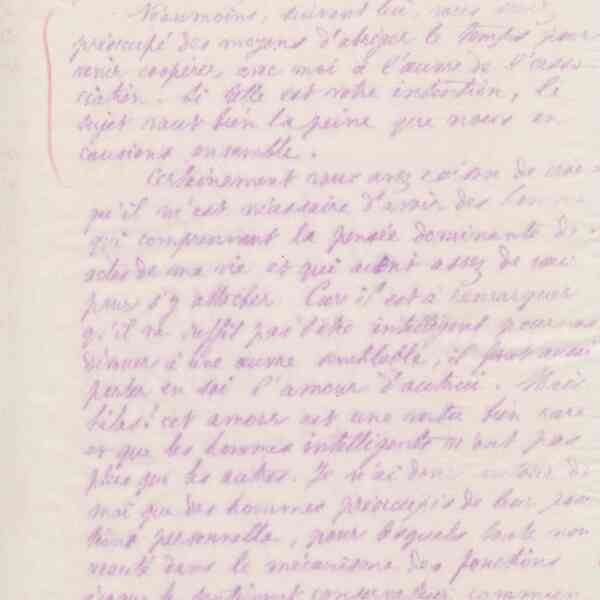 Néanmoins, suivant lui, vous
préoccupé des moyens d'abréger le temps pour
venir coopérer avec moi à l'œuvre de l'asso-
ciation. Si telle est votre intention, le
sujet vaut bien la peine que nous en
causions ensemble.
Certainement vous avez raison de croire
qu'il m'est nécessaire d'avoir des hommes
qui comprennent la pensée dominante des
actes de ma vie et qui aient assez de
pour s'y attacher. Car il est à remarquer
qu'il ne suffit pas d'être intelligent pour se
dévouer à une œuvre semblable, il faut aussi
porter en soi l'amour d'autrui. Mais
hélas! cet amour est une vertu bien rare
et que les hommes intelligents n'ont pas
plus que les autres. Je n'ai donc autour de
moi que des hommes préoccupés de leur
personnelle, pour lesquels toute nou-
veauté dans le mécanisme des fonctions
le sentiment conservateur